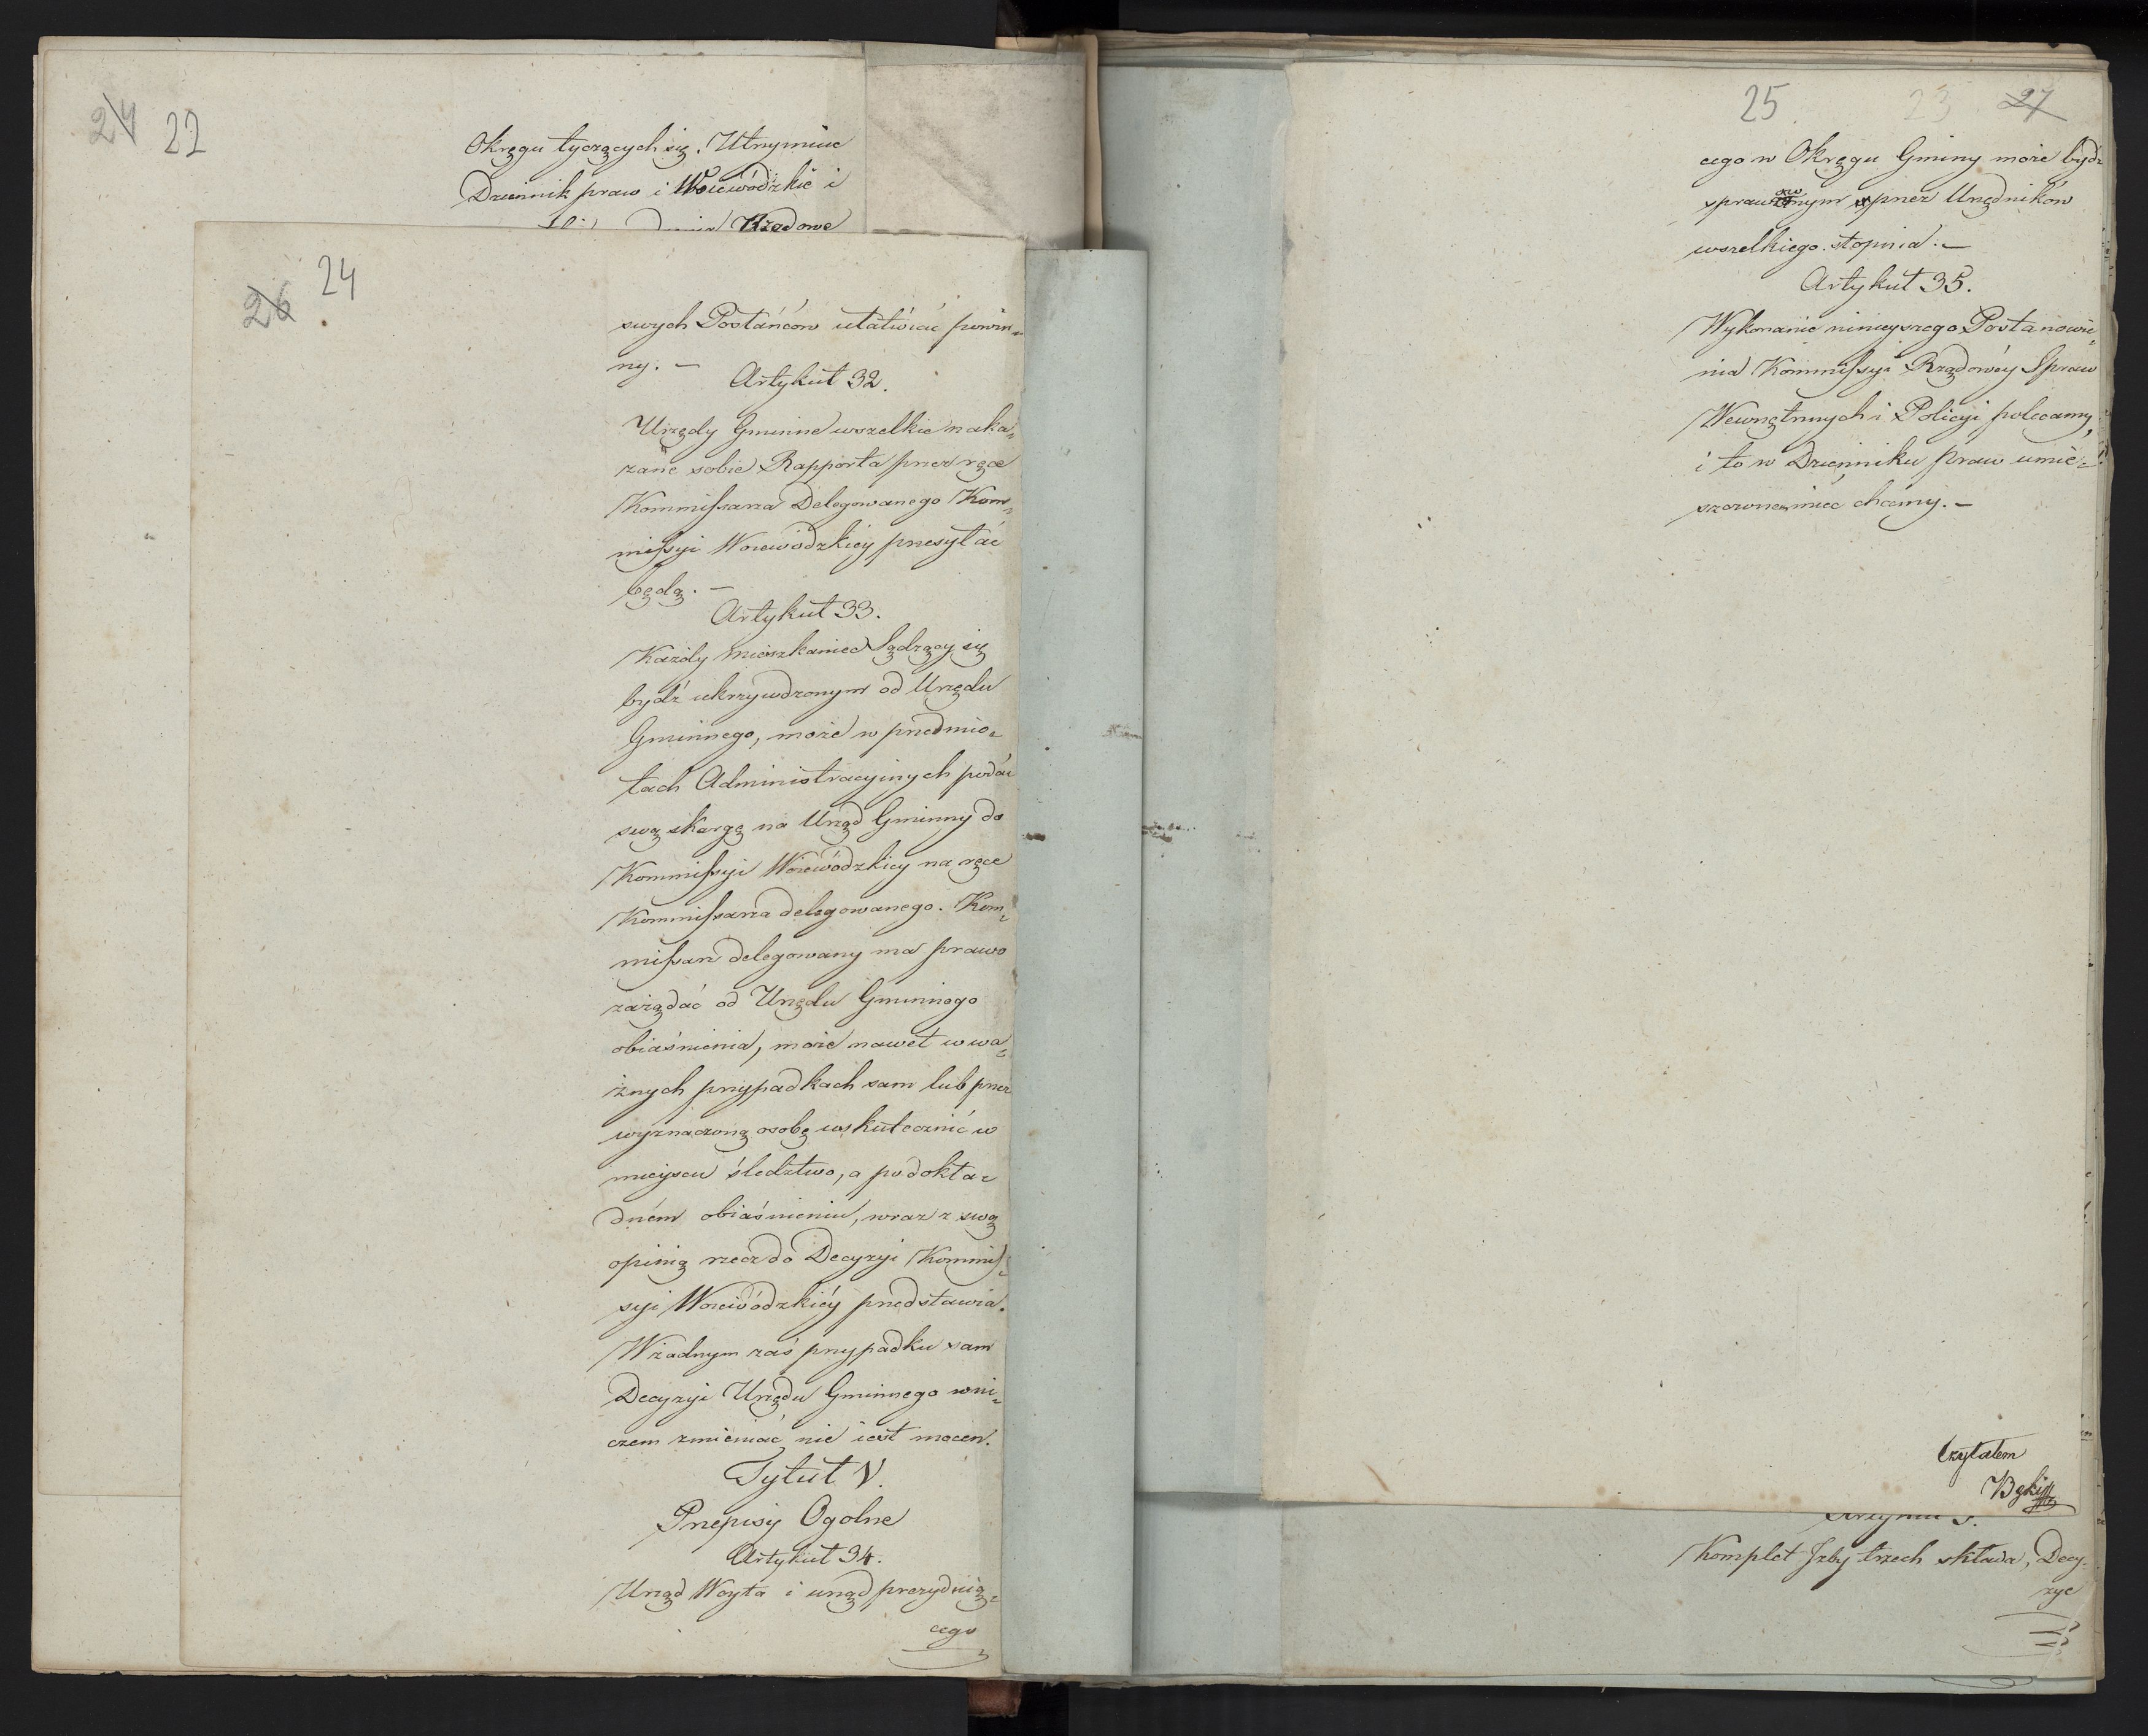 24 22
Okręgu tyczących się. Utrzymuie
Dziennik praw i Woiewódzkie i
Rządowe
26 24
swych Posłańców ułatwiać powin=
ny. —
Artykuł 32.
Urzędy Gminne wszelkie naka=
zane sobie Rapporta przez ręce
Kommissarza Delegowanego Kom=
missyi Woiewodzkiéy przesyłać
będą. —
Artykuł 33.
Każdy mieszkaniec Sądzący się
bydź ukrzywdzonym od Urzędu
Gminnego, może w przedmio=
tach Administracyinych podać
swą skargę na Urząd Gminny do
Kommissyi Woiewódzkiey na ręce
Kommissarza delegowanego. Kom=
missarz delegowany ma prawo
zażądać od Urzędu Gminnego
obiaśnienia, może nawet w wa=
żnych przypadkach sam lub przez
wyznaczoną osobę uskutecznić w
mieyscu śledztwo, a po dokła=
dném obiaśnieniu, wraz z swą
opinią rzecz do Decyzyi Kommis=
syi Woiewódzkiéy przedstawia.
W żadnym zaś przypadku sam
Decyzyi Urzędu Gminnego w ni=
czem zmieniać nie iest mocen.
Tytuł V.
Przepisy Ogolne
Artykuł 34.
Urząd Woyta i urząd prezyduią=
cego
25 23 27
cego w Okręgu Gminy może bydź
sprawowanym przez Urzędników
wszelkiego stopnia. —
Artykuł 35.
Wykonanie ninieyszego Postanowie=
nia Kommissyi Rządowéy Spraw
Wewnętrznych i Policyi polecamy,
i to w Dzienniku praw umie=
szczone mieć chcemy. —
Czytałem
Artykuł 5.
Komplet Izby trzech składa, Decy=
zye